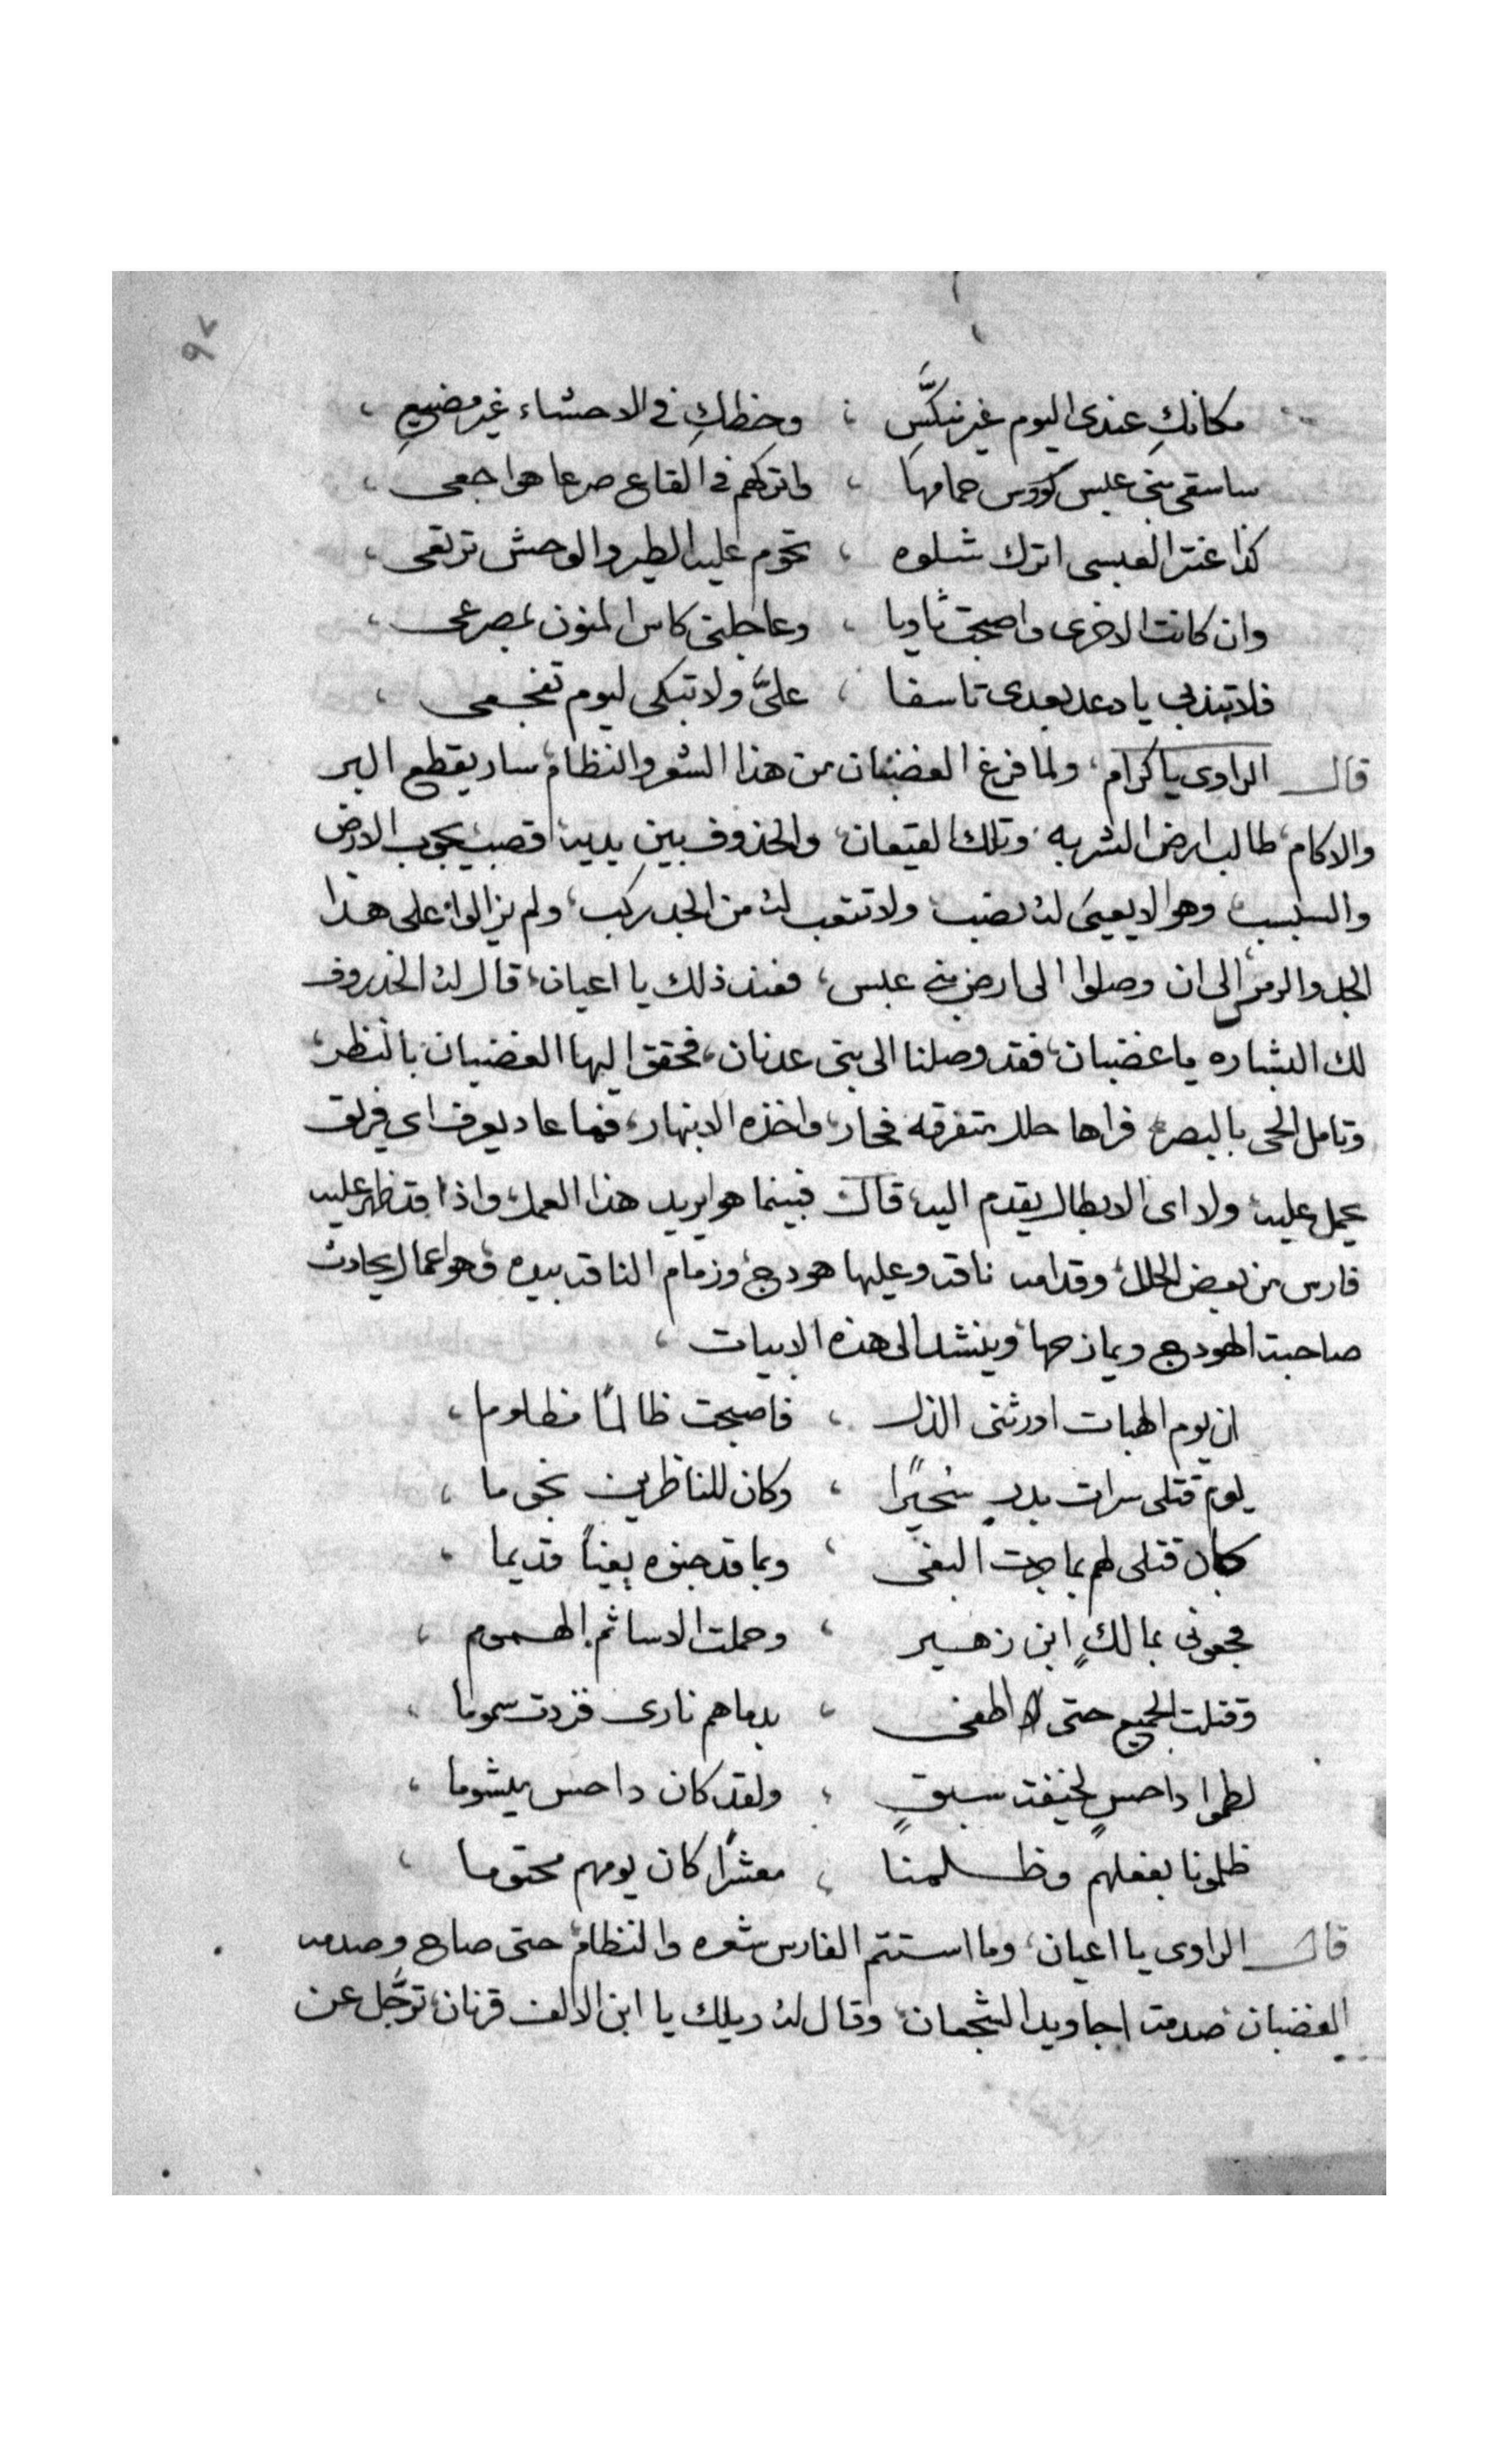 ٩٧
مكانكِ عندى اليوم غير منكَّسٍ ، وحظكِ فى الاحشاء غير مضيعِ ،
ساسقى بنى عبس كووس حمامها ، واتركهم فى القاع صرعا هواجعى ،
كذا عنتر العبسى اترك شلوه ، تحوم عليه الطير والوحش ترتعى ،
وان كانت الاخرى واصبحت ثاويا ، وعاجلنى كاس المنون لمصرعى ،
فلا تندبى يا دعد بعدى تاسفا ، علىَّ ولا تبكى ليوم تفجعى ،
قال الراوى يا كرام، ولما فرغ الغضبان من هذا الشعر والنظام، سار يقطع البر
والاكام، طالب ارض الشربه، وتلك القيعان، والخذروف بين يديه اقصب، يجوب الارض
والسبسب، وهو لا يعيى له نصب، ولا تتعب له من الجد ركب، ولم يزالوا على هذا
الجد والرمز، الى ان وصلوا الى ارض بنى عبس، فعند ذلك يا اعيان، قال له الخذروف
لك البشاره يا غضبان، فقد وصلنا الى بنى عدنان، فحقق اليها الغضبان بالنظر،
وتامل الحى بالبصر، فراها حلل متفرقه فحار، واخذه الانبهار، فما عاد يعرف اى فريق
يحمل عليه، ولا اى الابطال يقدم اليه، قال فبينما هو يريد هذا العمل، واذا قد ظهر عليه
فارس من بعض الحلل، وقدامه ناقه وعليها هودج، وزمام الناقه بيده، وهو عمال يحادث
صاحبة الهودج ويمازحها، وينشد الى هذه الابيات ،
ان يوم الهبات اورثنى الذل ، فاصبحت ظالمًا مظلوما ،
يوم قتلى سرات بدرٍ سُحيرًا ، وكان للناظرين نجوما ،
كان قتلى لهم بما جرت البغى ، وبما قد جنوه بغياً قديما ،
فجعونى بمالكٍ ابن زهير ، وحملت الاسا ثم الهموم ،
وقتلت الجميع حتى اطفى ، بدماهم نارى فزدت سموما ،
لطموا داحسٍ لخيفة سبقٍ ، ولقد كان داحس ميشوما ،
ظلمونا بفعلهم وظلمنا ، معشرًا كان يومهم محتوما ،
قال الراوى يا اعيان، وما استتم الفارس شعره والنظام، حتى صاح وصدمه
الغضبان، صدمة اجاويد الشجعان، وقال له ويلك يا ابن الالف قرنان، ترجَّل عن